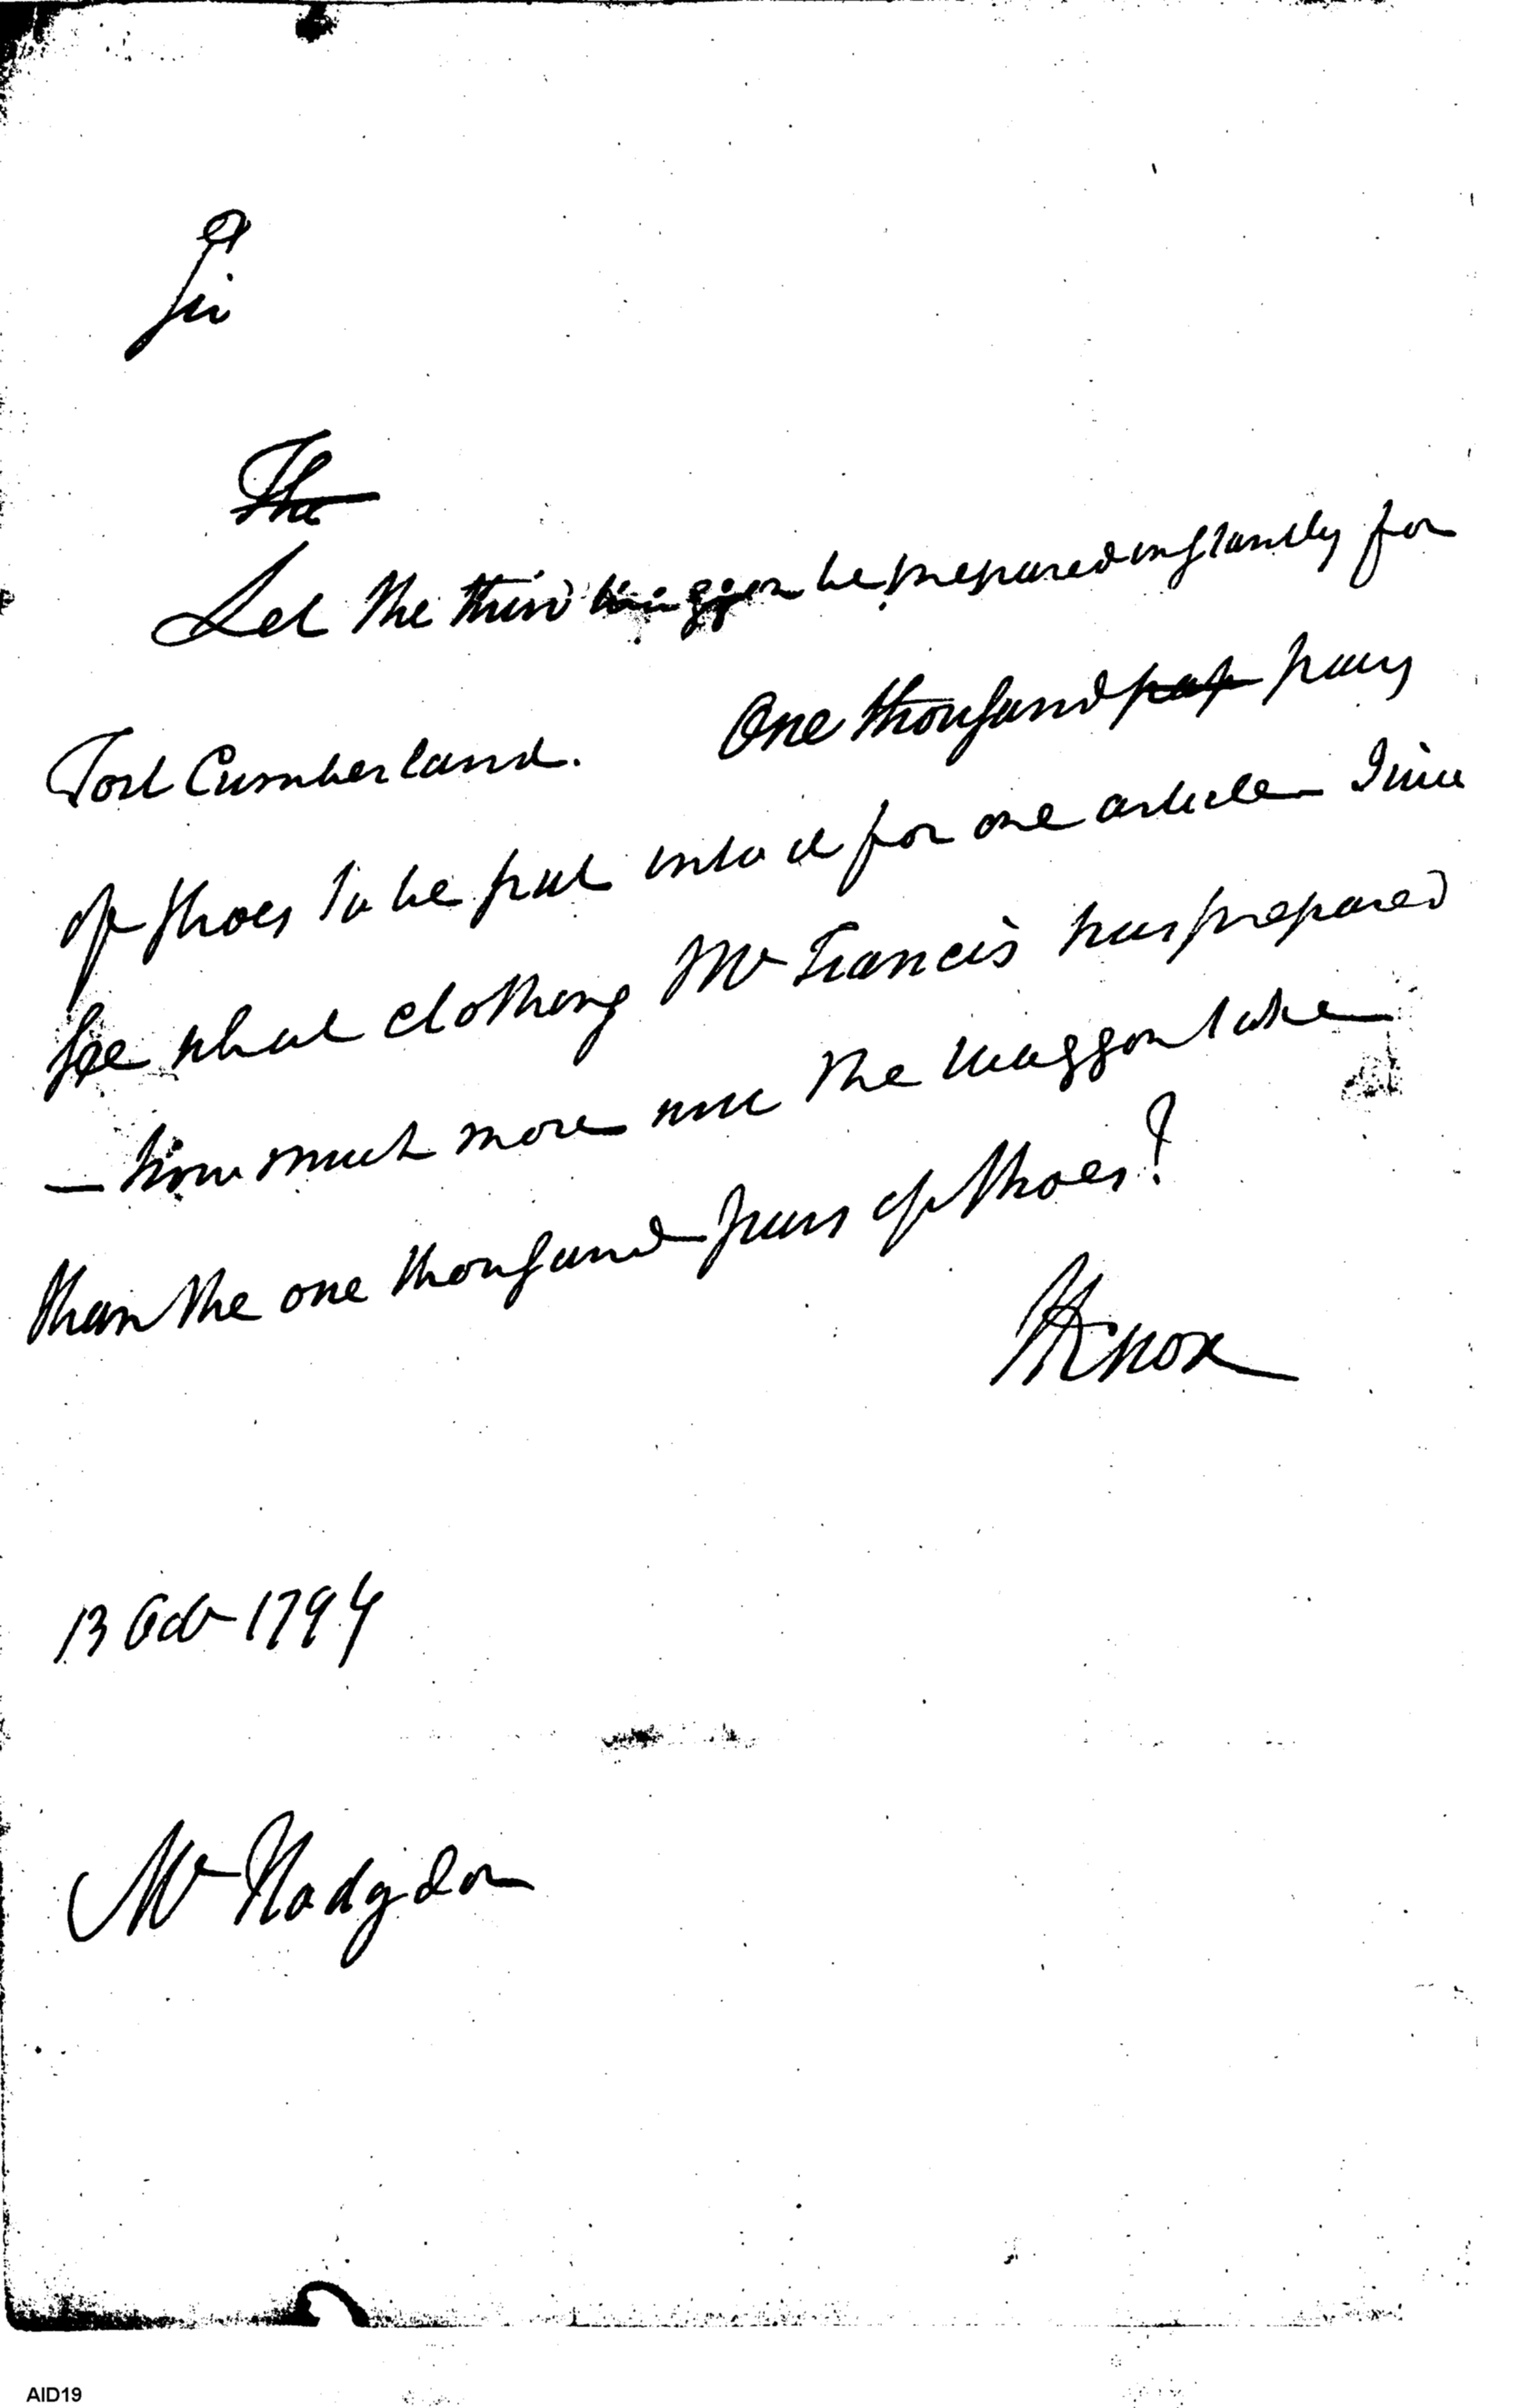 Sir
The
Let the third waggon be prepared instantly for
Fort Cumberland. One thousand pap pairs
of shoes to be put into it for one article I will
see what clothing Mr Francis has prepared
— how much more will the waggon take
than the one thousand pairs of shoes?
HKnox
13 Oct 1794
Mr Hodgdon
AID19